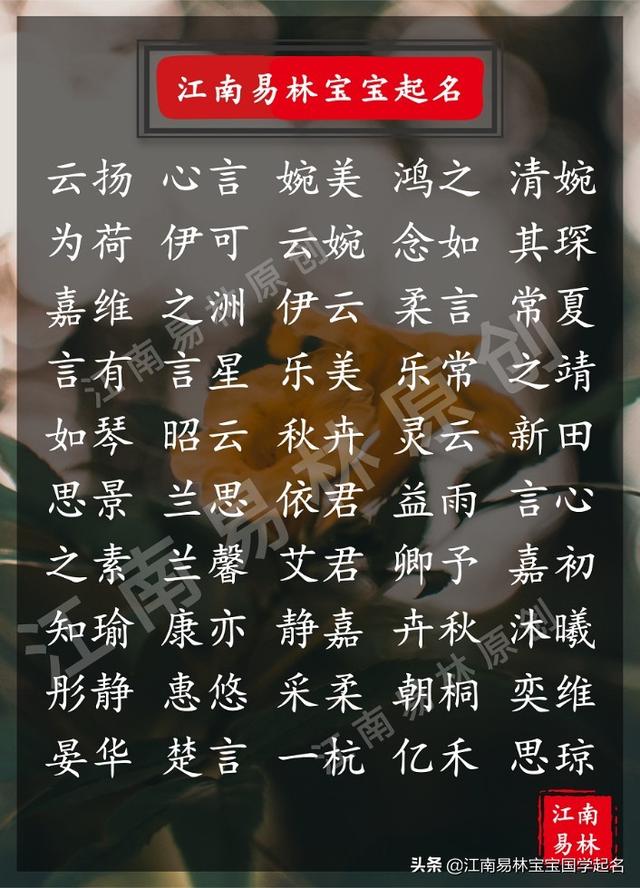 江南易林宝宝起名
云扬 心言 婉美 鸿之 清婉
为荷 伊可 云婉 念如 其琛
嘉维 之洲 伊云 柔言 常夏
言有 言星 乐美 乐常 之靖
如琴 昭云 秋卉 灵云 新田
思景 兰思 依君 益雨 言心
之素 兰馨 艾君 卿予 嘉初
知瑜 康亦 静嘉 卉秋 沐曦
彤静 惠悠 采柔 朝桐 奕维
晏华 楚言 一杭 亿禾 思琼
江南易林原创
江南易林原创
江南易林原创
江南
易林
头条 @江南易林宝宝国学起名